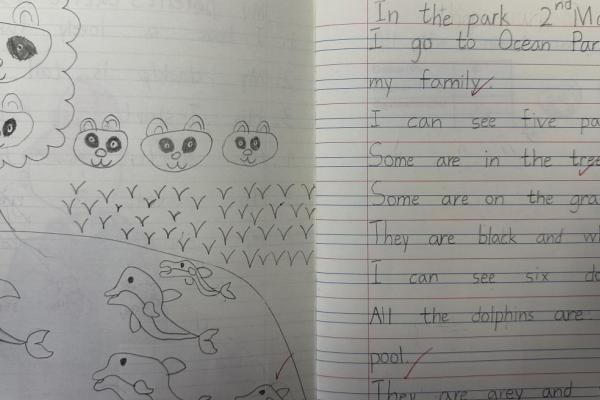 In the park 2nd Mo
I go to Ocean Par
my family.
I can see five pa
Some are in the tree
Some are on the gra
They are black and wh
I can see six do
All the dolphins are
pool.
They are grey and